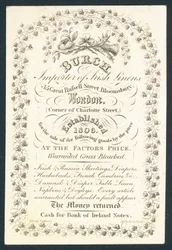 BURCH
Importer of Irish Linens
Great Russell Street Bloomsbury
London.
(Corner of Charlotte Street.)
Established
1806.
for the sale of the following Goods by the piece
AT THE FACTORS PRICE.
Warranted Grass Bleached
Irish & Russia Sheetings, Diapers,
Huckabacks, French Cambrics, &c.
Damask & Diaper Table Linen
Napkins & Doyleys. Every article
warranted but should a fault appear
The Money returned
Cash for Bank of Ireland Notes.